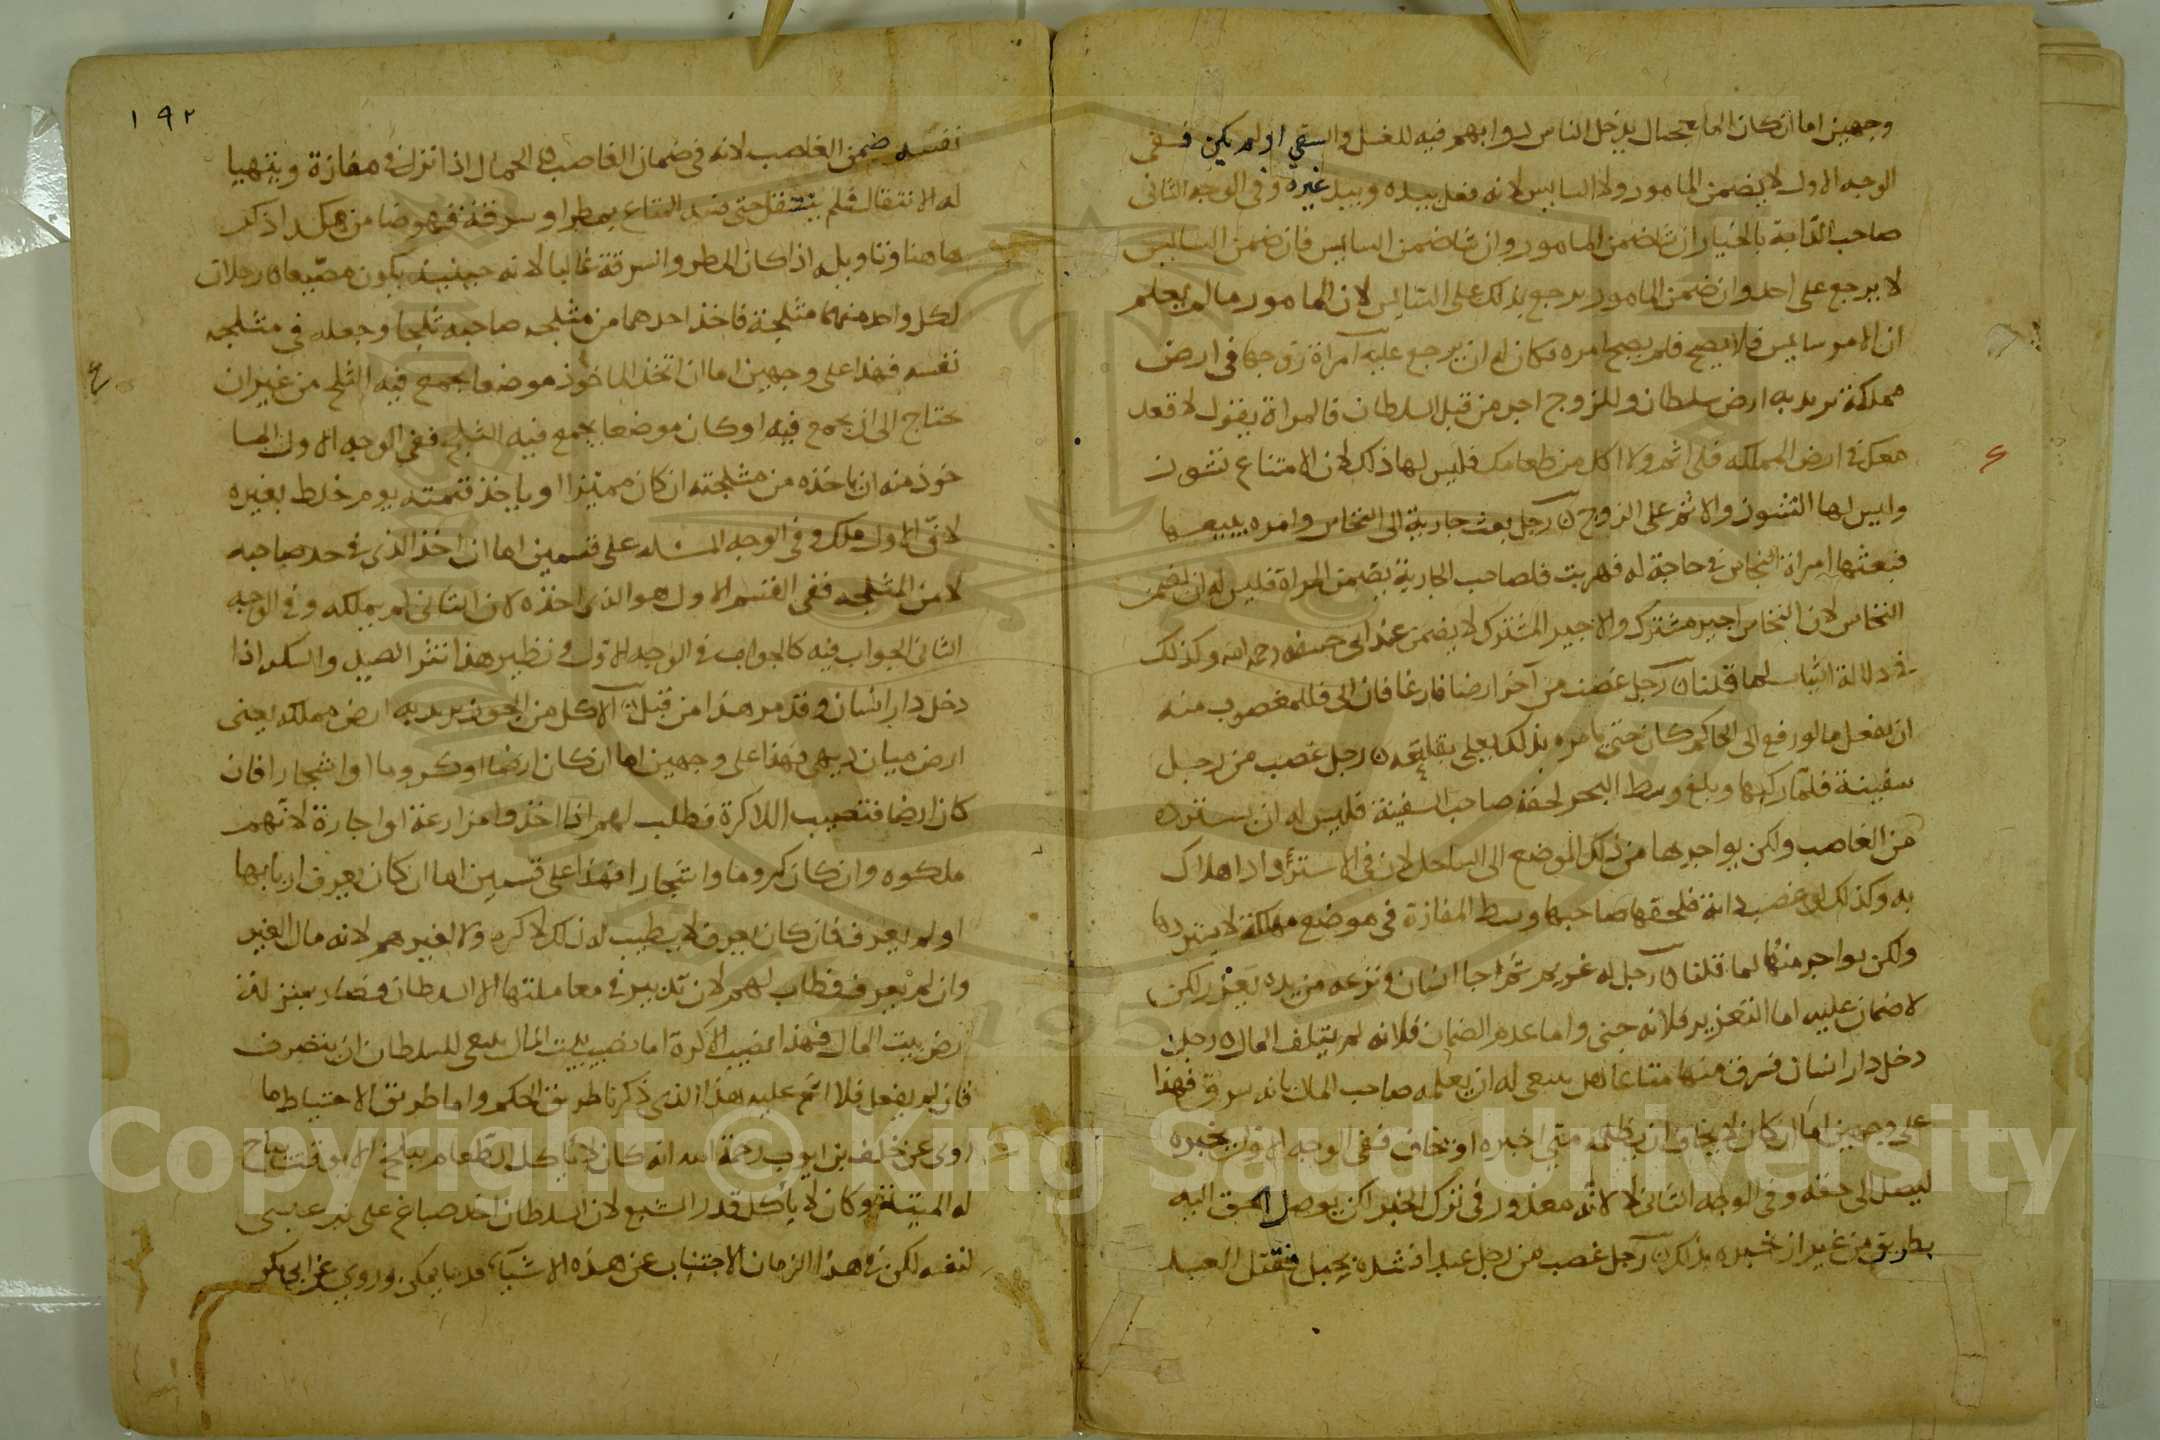 وجهين اما ان كان الماء بحال يدخل الناس دوابهم فيه للغسل والسقي او لم يكن ففي
الوجه الاول لا يضمن المامور ولا السايس لانه فعل بيده وبيد غيره وفي الوجه الثاني
صاحب الدابة بالخيار ان شا ضمن المامور وان شا ضمن السايس فان ضمن السايس
لا يرجع على احد وان ضمن المامور يرجع بذلك على السايس لان المامور ما لم يعلم
ان الامر سايس فلا يصح فلم يصح امره فكان له ان يرجع عليه امراة زوجها في ارض
مملكة يريد به ارض سلطان وللزوج اجر من قبل السلطان فالمراة يقول لا قعد
معك في ارض المملكه فلي اثم ولا اكل من طعامك فليس لها ذلك لان الامتناع نشوز
وليس لها النشوز والاثم على الزوج رجل بعث جارية الى النخاس وامره ببيعها
فبعثها امراة النخاس في حاجة له فهربت فلصاحب الجارية يضمن المراة فليس له ان يضمن
النخاس لان النخاس اجير مشترك والاجير المشترك لا يضمن عند ابي حنيفه رحمه الله وكذلك
في دلالة الثياب لما قلنا رجل غصب من آخر ارضا فارغا فان ابى فللمغصوب منه
ان يفعل ما لو رفع الى الحاكم كان حتى يامره بذلك رجل غصب من رجل
سفينة فلما ركبها وبلغ وسط البحر لحقه صاحب السفينة فليس له ان يسترده
من الغاصب ولكن يواجرها من ذلك الموضع الى الساحل لان في الاسترداد اهلاك
به وكذلك لو غصب دابة فلحقها صاحبها وسط المفازة في موضع مهلكة لا يستردها
ولكن يواجر منها لما قلنا رجل له غريم ثم جا انسان ونزعه من يده يعزر لكن
لا ضمان عليه اما التعزير فلانه جنى واما عدم الضمان فلانه لم يتلف المال رجل
دخل دار انسان فسرق منها متاعا هل ينبغي له ان يعلمه صاحب المال بانه سرق فهذا
على وجهين اما ان كان لا يخاف ان يظلمه متى اخبره او يخاف ففي الوجه الاول يخبره
ليصل الى حقه وفي الوجه الثاني لا لانه معذور في ترك الخبر لكن يوصل الحق اليه
بطريق من غير ان خبره بذلك رجل غصب من رجل عبدا فشده بحبل فقتل العبد
١٩٢
نفسه ضمن الغاصب لانه في ضمان الغاصب الحمال اذا نزل في مفازة وتهيا
له الانتقال فلم ينتقل حتى فسد المتاع بمطر او سرقة فهو ضامن هكذا ذكر
هاهنا وتاويله اذا كان المطر والسرقة غالبا لانه حينئذ يكون مضيعا رجلان
لكل واحد منهما مثلجة فاخذ احدهما من مثلجه صاحبه ثلجا وجعله في مثلجه
نفسه فهذا على وجهين اما ان اتخذ الماخوذ موضعا يجمع فيه الثلج من غير ان
يحتاج الى ان يجمع فيه او كان موضعا يجمع فيه الثلج ففي الوجه الاول الما
خوذ منه ان ياخذه من مثلجته ان كان مميزا او ياخذ قيمته يوم خلط بغيره
لان الاول ملك وفي الوجه المسئله على قسمين اما ان اخذ الذي في حد صاحبه
لا من المثلجه ففي القسم الاول هو الذي اخذه لان الثاني لم يملكه وفي الوجه
الثاني الجواب فيه كالجواب في الوجه الاول ونظير هذا نثر الصيد والسكر اذا
دخل دار انسان وقد مر هذا من قبل الاكل من الجوز يريد به ارض مملكه يعني
ارض ميان دهي فهذا على وجهين اما ان كان ارضا او كروما او اشجارا فان
كان ارضا فنصيب الاكرة فطلب لهم اذا اخذوا مزارعة او اجارة لانهم
ملكوه وان كان كروما واشجارا فهذا على قسمين اما ان كان يعرف اربابها
او لم يعرف فان كان يعرف لا يطيب له ذلك لاكرة ولا لغيرهم لانه مال الغير
وان لم يعرف فطاب لهم لان تدبير في معاملتها الى السلطان فصار بمنزلة
ارض بيت المال فهذا نصيب الاكرة اما نصيب بيت المال ينبغي للسلطان ان يتصرف
فان لم يفعل فلا اثم عليه هذا الذي ذكرنا طريق الحكم واما طريق الاحتياط ما
روى عن خلف بن ايوب رحمة الله انه كان لا ياكل الطعام ببلخ الا بوقت يباح
له الميتة وكان لا ياكل قدر الشبع لان السلطان اخذ صباغ على نهر عيسى
لنفسه لكن في هذا الزمان الاجتناب عن هذه الاشياء قد لا يمكن وروي عن ابي بكر